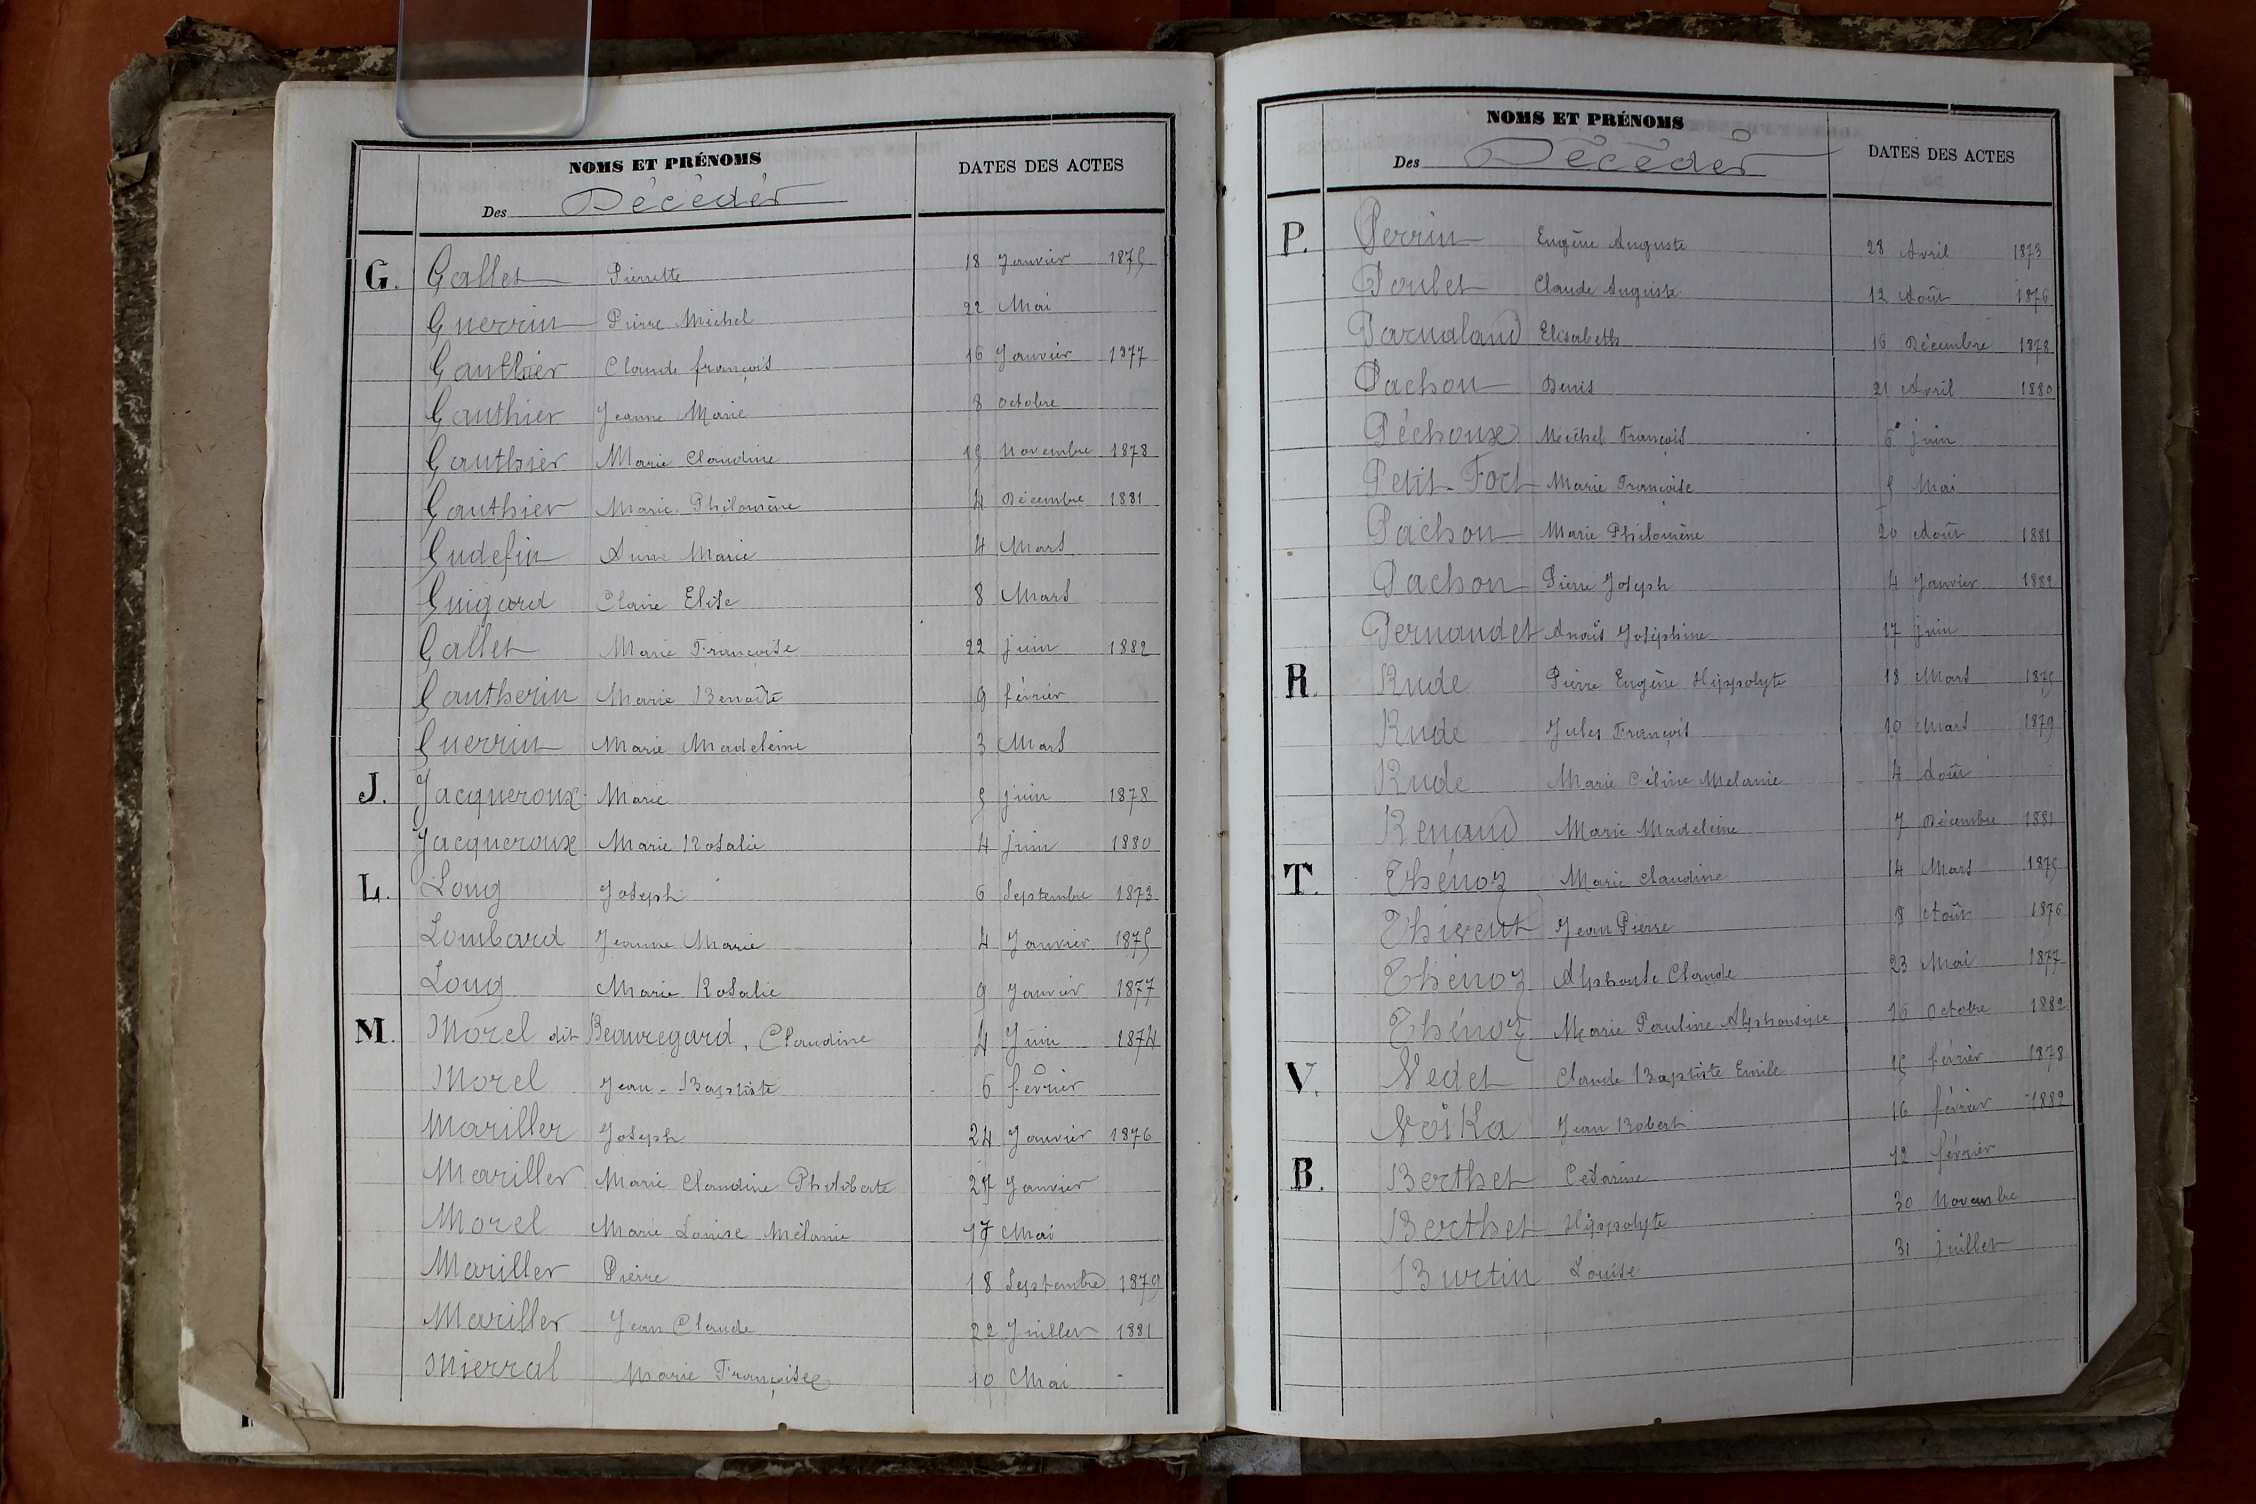 NOMS ET PRÉNOMS
DATES DES ACTES
Des Décédés
G. Gallet Pierrette 18 Janvier 1875
Guerrin Pierre Michel 22 Mai
Gauthier Claude françois 16 Janvier 1877
Gauthier Jeanne Marie 8 octobre
Gauthier Marie Claudine 15 Novembre 1878
Gauthier Marie Philomène 4 Décembre 1881
Gudefin Anne Marie 4 Mars
Guigard Claire Elise 8 Mars
Gallet Marie Françoise 22 juin 1882
Gautherin Marie Benoîte 9 février
Guerrin Marie Madeleine 3 Mars
J. Jacqueroux Marie 5 juin 1878
Jacqueroux Marie Rosalie 4 juin 1880
L. Long Joseph 6 Septembre 1873
Lombard Jeanne Marie 4 Janvier 1875
Long Marie Rosalie 9 Janvier 1877
M. Morel dit Beauregard, Claudine 4 Juin 1874
Morel Jean-Baptiste 6 février
Mariller Joseph 24 Janvier 1876
Mariller Marie Claudine Philiberte Janvier
Morel Marie Louise Mélanie 17 Mai
Mariller Pierre 18 Septembre 1879
Mariller Jean Claude 22 Juillet 1881
Mierral Marie Françoise 10 Mai -
NOMS ET PRÉNOMS
Des Décédés
DATES DES ACTES
P. Perrin Eugène Auguste 28 Avril 1873
Poulet Claude Auguste 12 Août 1876
Parnaland Elisabeth 16 Décembre 1878
Pachon Denis 21 Avril 1880
Péchoux Michel François 6 juin
Petit-Fort Marie Françoise 5 Mai
Pachon Marie Philomène 20 Août 1881
Pachon Pierre Joseph 4 Janvier 1882
Pernaudet Anaïs Joséphine 17 juin
R. Rude Pierre Eugène Hippolyte 18 Mars 1875
Rude Jules François 10 Mars 1879
Rude Marie Céline Melanie 4 Août
Renaud Marie Madeleine 7 Décembre 1881
T. Thénoz Marie Claudine 14 Mars 1875
Thivent Jean Pierre 8 Août 1876
Thénoz Alphonse Claude 23 Mai 1877
Thénoz Marie Pauline Alphonsine 16 Octobre 1882
V. Vedet Claude Baptiste Emile 15 février 1878
Voïka Jean Robert 16 février 1882
B. Berthet Césarine 12 février
Berthet Hippolyte 30 Novembre
Burtin Louise 31 juillet